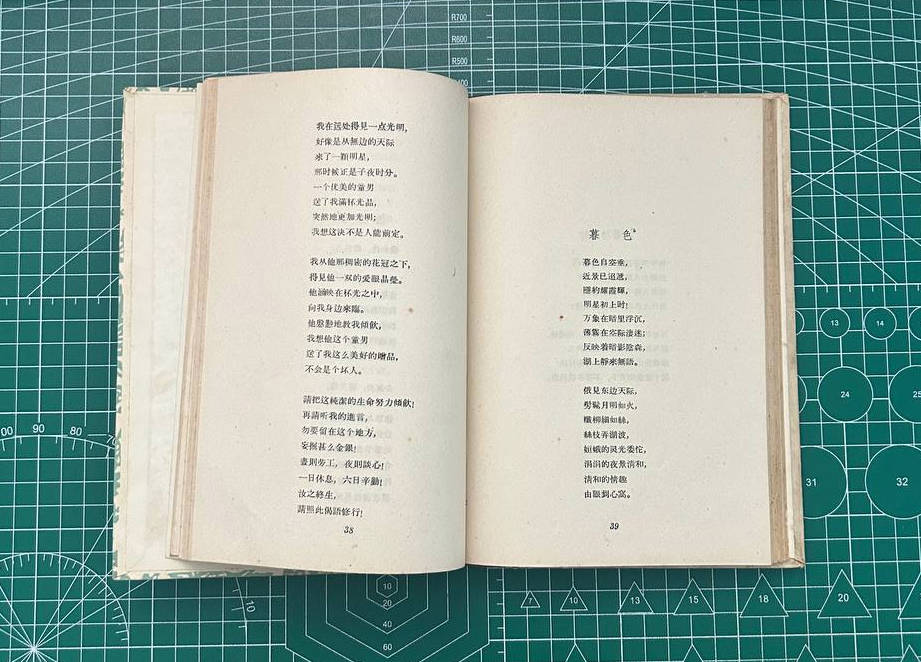 R700
R600
R500
我在远处得見一点光明,
好像是从無边的天际
来了一顆明星,
那时候正是子夜时分。
一个优美的童男
送了我滿杯光晶,
突然地更加光明;
我想这决不是人能前定。
我从他那稠密的花冠之下,
得見他一双的爱眼晶瑩。
他涵映在杯光之中,
向我身边来臨。
他慇懃地教我傾飲,
我想他这个童男
送了我这么美好的贈品,
不会是个坏人。
請把这純潔的生命努力傾飲!
再請听我的進言,
勿要留在这个地方,
妄掘甚么金銀!
晝則劳工, 夜則談心!
一日休息, 六日辛勤!
汝之終生,
請照此偈語修行!
38
暮色*
暮色自空垂,
近景已迢遞,
隱約耀霞輝,
明星初上时!
万象在暗里浮沉,
薄霧在空际淒迷;
反映着暗影陰森,
湖上靜來無語。
俄見东边天际,
髣髴月明如火,
纖柳摛如絲,
絲枝弄湖波,
姮娥的灵光委佗,
涓涓的夜景清和,
清和的情趣
由眼到心窩。
39
13
14
24
31
32
00
90
80
10
10
20
40
60
7
10
13
15
18
20